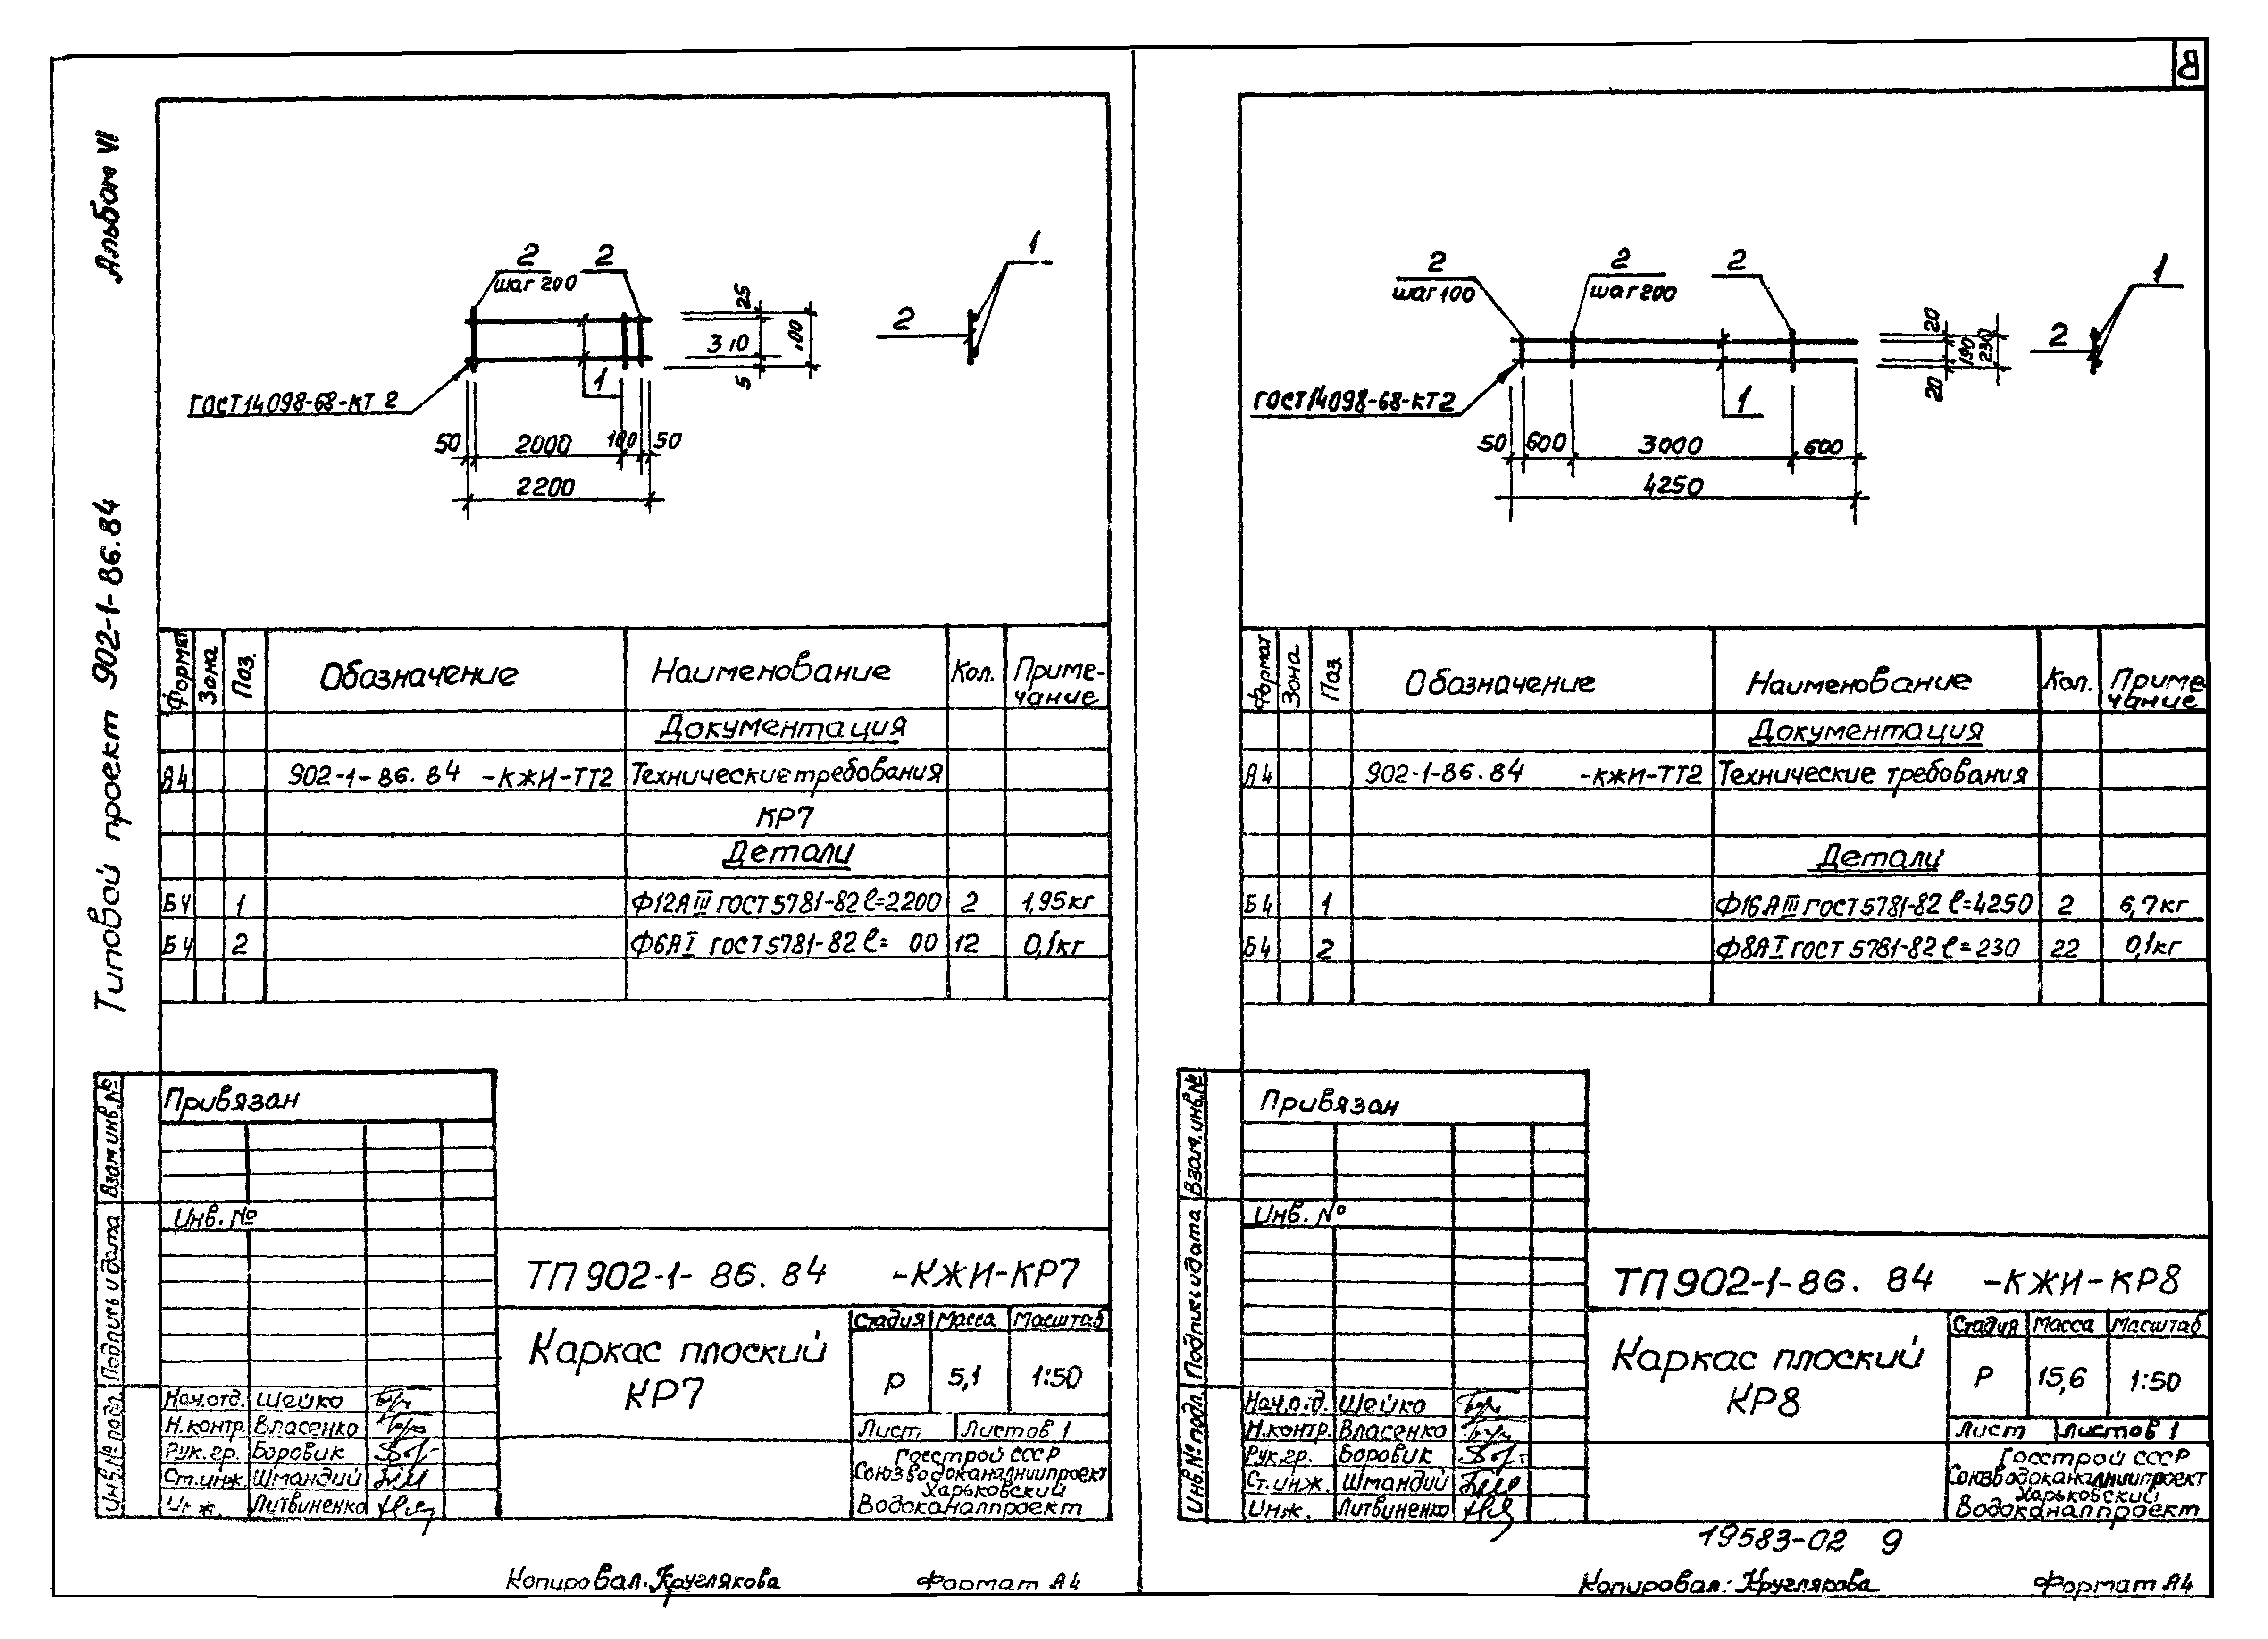 Альбом VI
Типовой проект 902-1-86.84
2
шаг 200
2
1
25
310
5
100
2
1
ГОСТ 14098-68-КТ 2
50
2000
100
50
2200
Формат
Зона
Поз.
Обозначение
Наименование
Кол.
Приме-
чание
Документация
А4 902-1-86.84 -КЖИ-ТТ2 Технические требования
КР7
Детали
Б4 1 Ф12АIII ГОСТ 5781-82 ℓ=2200 2 1,95кг
Б4 2 Ф6АI ГОСТ 5781-82 ℓ= 00 12 0,1кг
Привязан
Инв. №
Взам.инв.№
Подпись и дата
Инв.№ подл.
ТП 902-1-86.84 -КЖИ-КР7
Каркас плоский
КР7
Стадия Масса Масштаб
Р 5,1 1:50
Лист Листов 1
Нач.отд. Шейко
Н.контр. Власенко
Рук.гр. Боровик
Ст.инж. Шмандий
Ин ж. Литвиненко
Госстрой СССР
Союзводоканалниипроект
Харьковский
Водоканалпроект
Копировал. Круглякова
Формат А4
8
2
шаг 100
2
шаг 200
2
1
20
190
230
20
2
1
ГОСТ 14098-68-КТ2
50
600
3000
600
4250
Формат
Зона
Поз
Обозначение
Наименование
Кол.
Приме
чание
Документация
А4 902-1-86.84 -КЖИ-ТТ2 Технические требования
Детали
Б4 1 Ф16АIII ГОСТ 5781-82 ℓ=4250 2 6,7кг
Б4 2 Ф8АI ГОСТ 5781-82 ℓ=230 22 0,1кг
Привязан
Инв. №
Взам.инв.№
Подпись и дата
Инв.№ подл.
ТП 902-1-86.84 -КЖИ-КР8
Каркас плоский
КР8
Стадия Масса Масштаб
Р 15,6 1:50
Лист Листов 1
Нач.отд. Шейко
Н.контр. Власенко
Рук.гр. Боровик
Ст.инж. Шмандий
Инж. Литвиненко
Госстрой СССР
Союзводоканалниипроект
Харьковский
Водоканалпроект
19583-02 9
Копировал: Круглякова
Формат А4